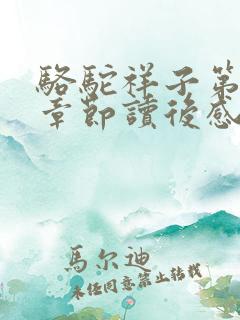 駱駝祥子第
章節讀後感
馬尔迪
未經同意禁止轉載